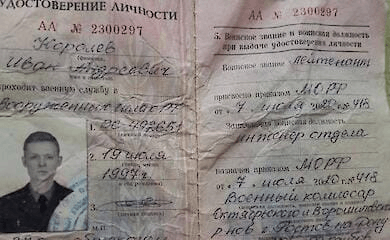 УДОСТОВЕРЕНИЕ ЛИЧНОСТИ
АА № 2300297
Королев
Иван Андреевич
проходит военную службу в
Вооруженных силах РФ
19 июля
1997 г.
АА № 2300297
5. Воинское звание и воинская должность
при выдаче удостоверения личности
Воинское звание лейтенант
присвоено приказом МОРФ
от 7 июля 2020 г. № 418
Занимаемая воинская должность
инженер отдела
назначен приказом МОРФ
от 7 июля 2020 г. № 418
Военный комиссар
Октябрьского и Ворошиловского
р-нов г. Ростов на Дону